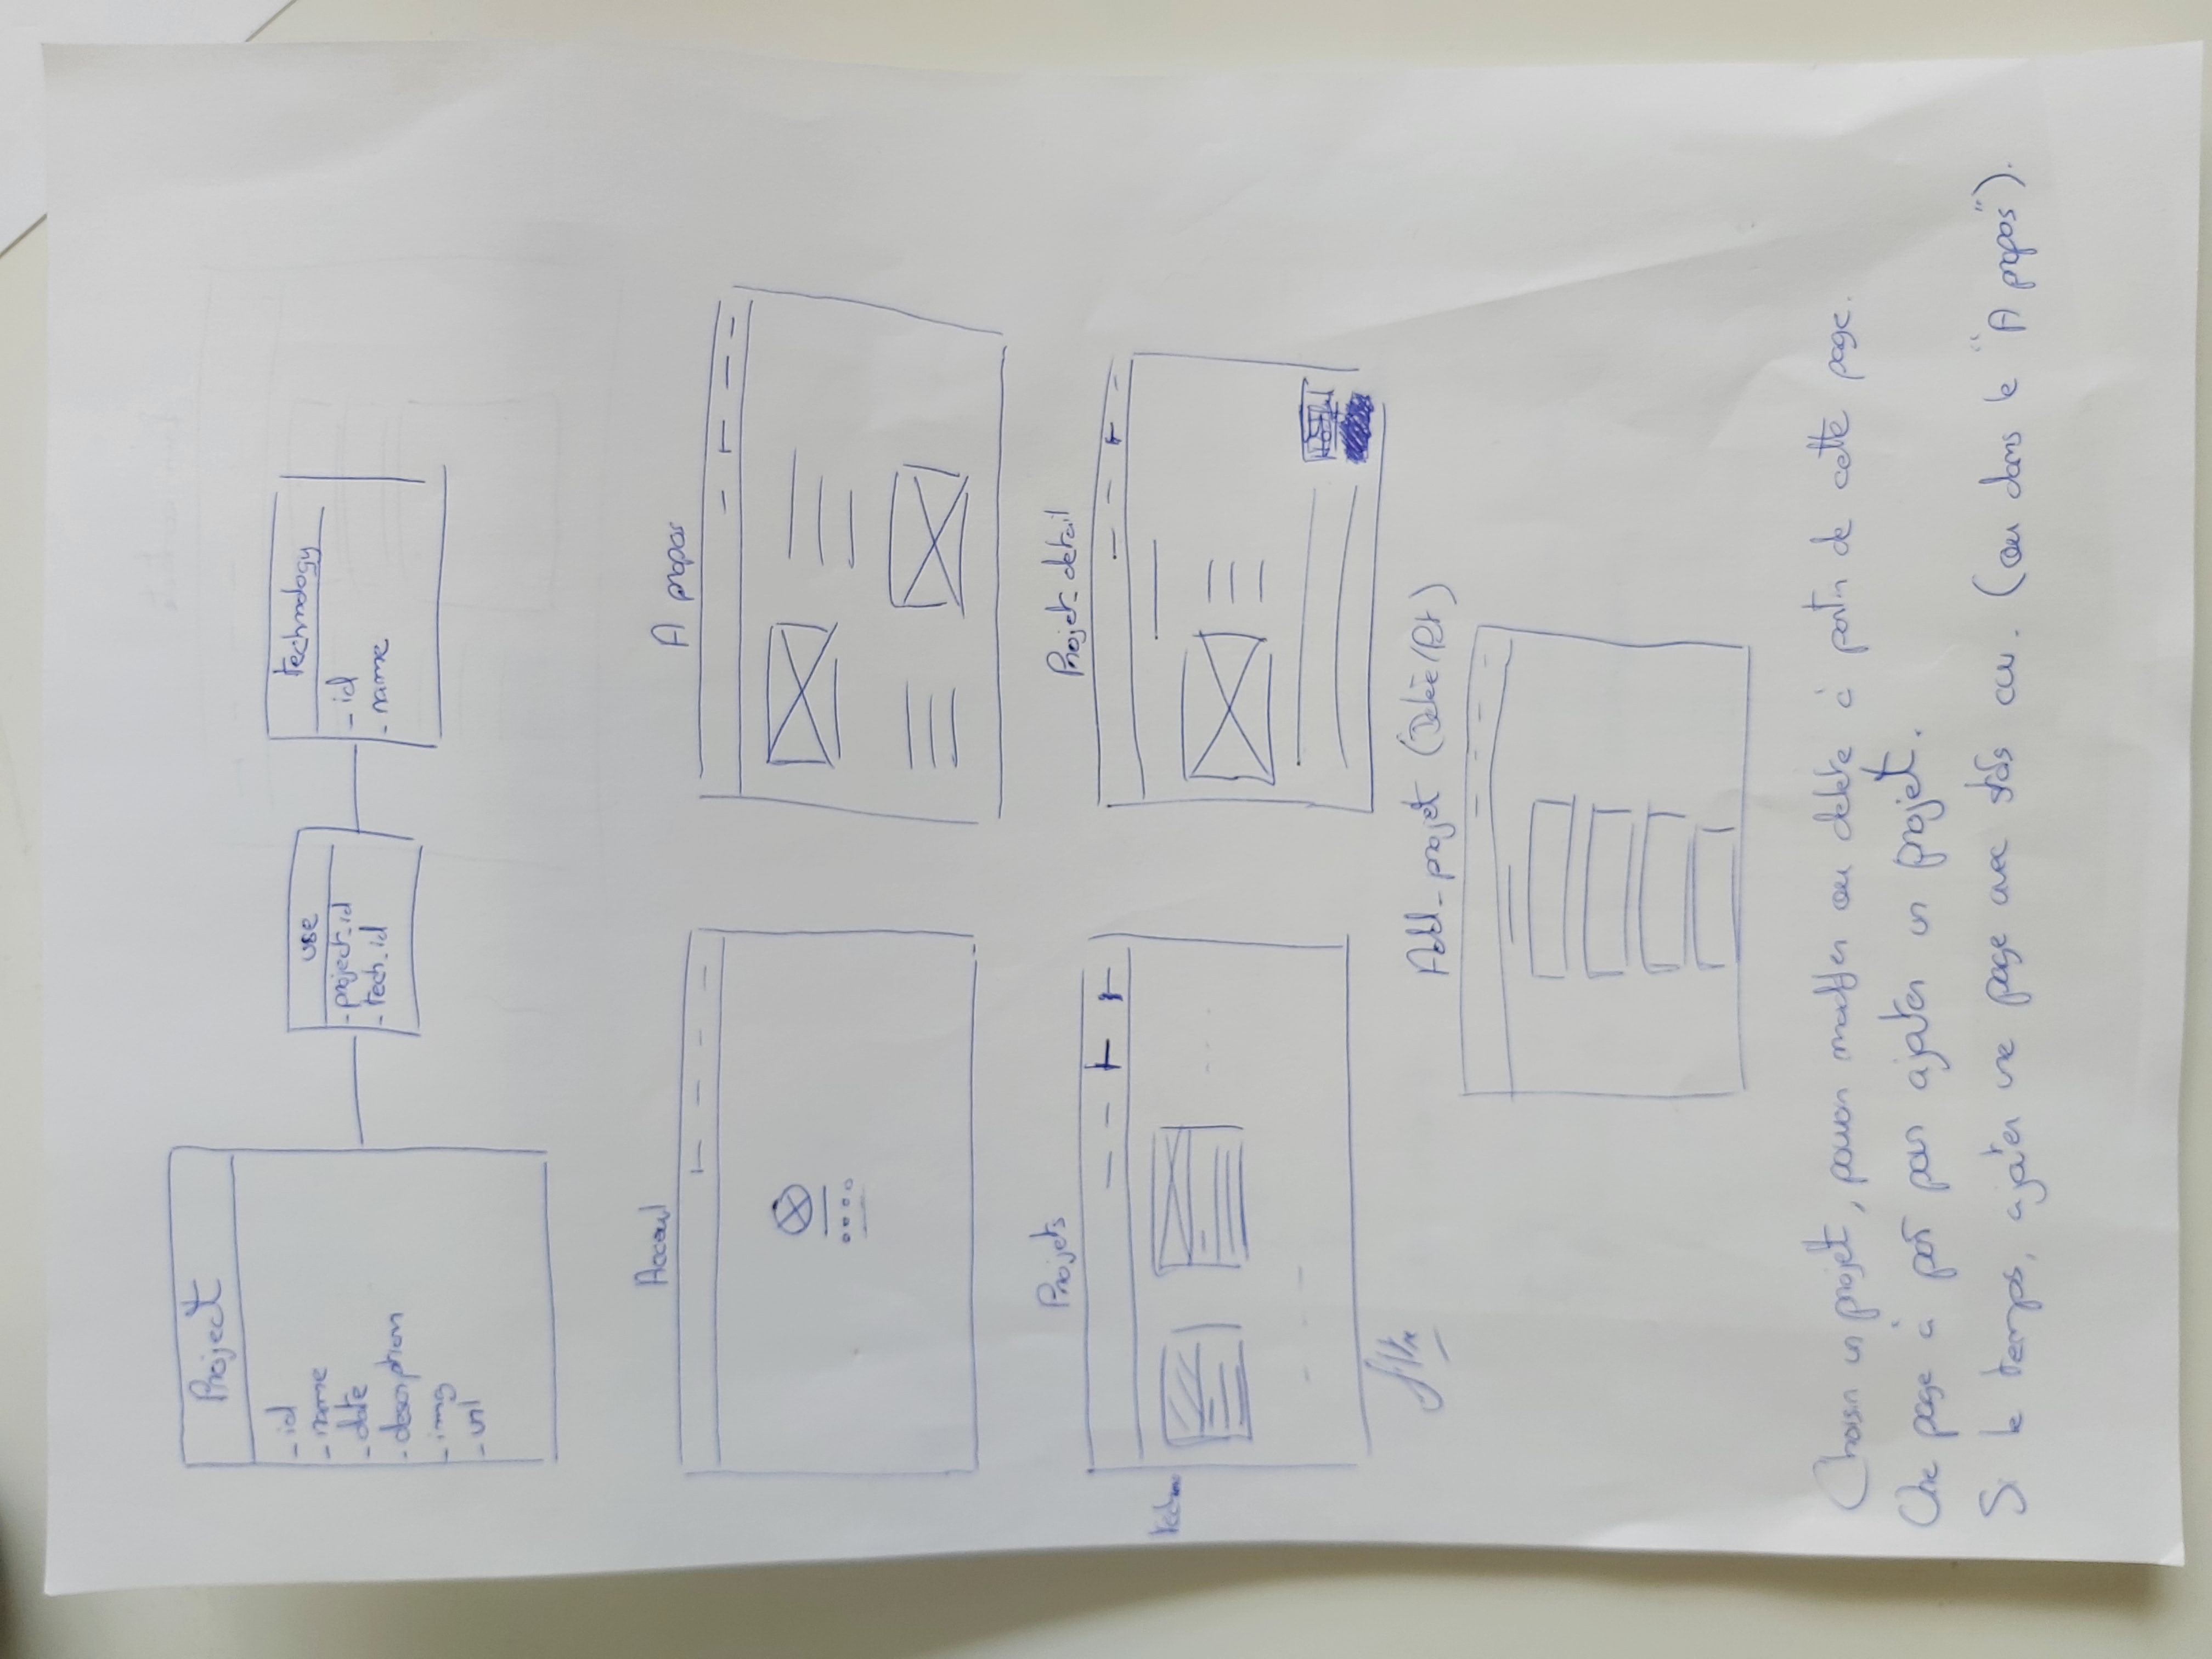 Project
- id
- name
- date
- description
- img
- url
use
- project_id
- tech_id
technology
- id
- name
Acceuil
A propos
Projets
Projet_detail
Add_projet (Delete/Put)
Choisir un projet, pouvoir modifier ou delete à partir de cette page.
Une page à part pour ajouter un projet.
Si le temps, ajouter une page avec stats cw. (ou dans le "A propos").